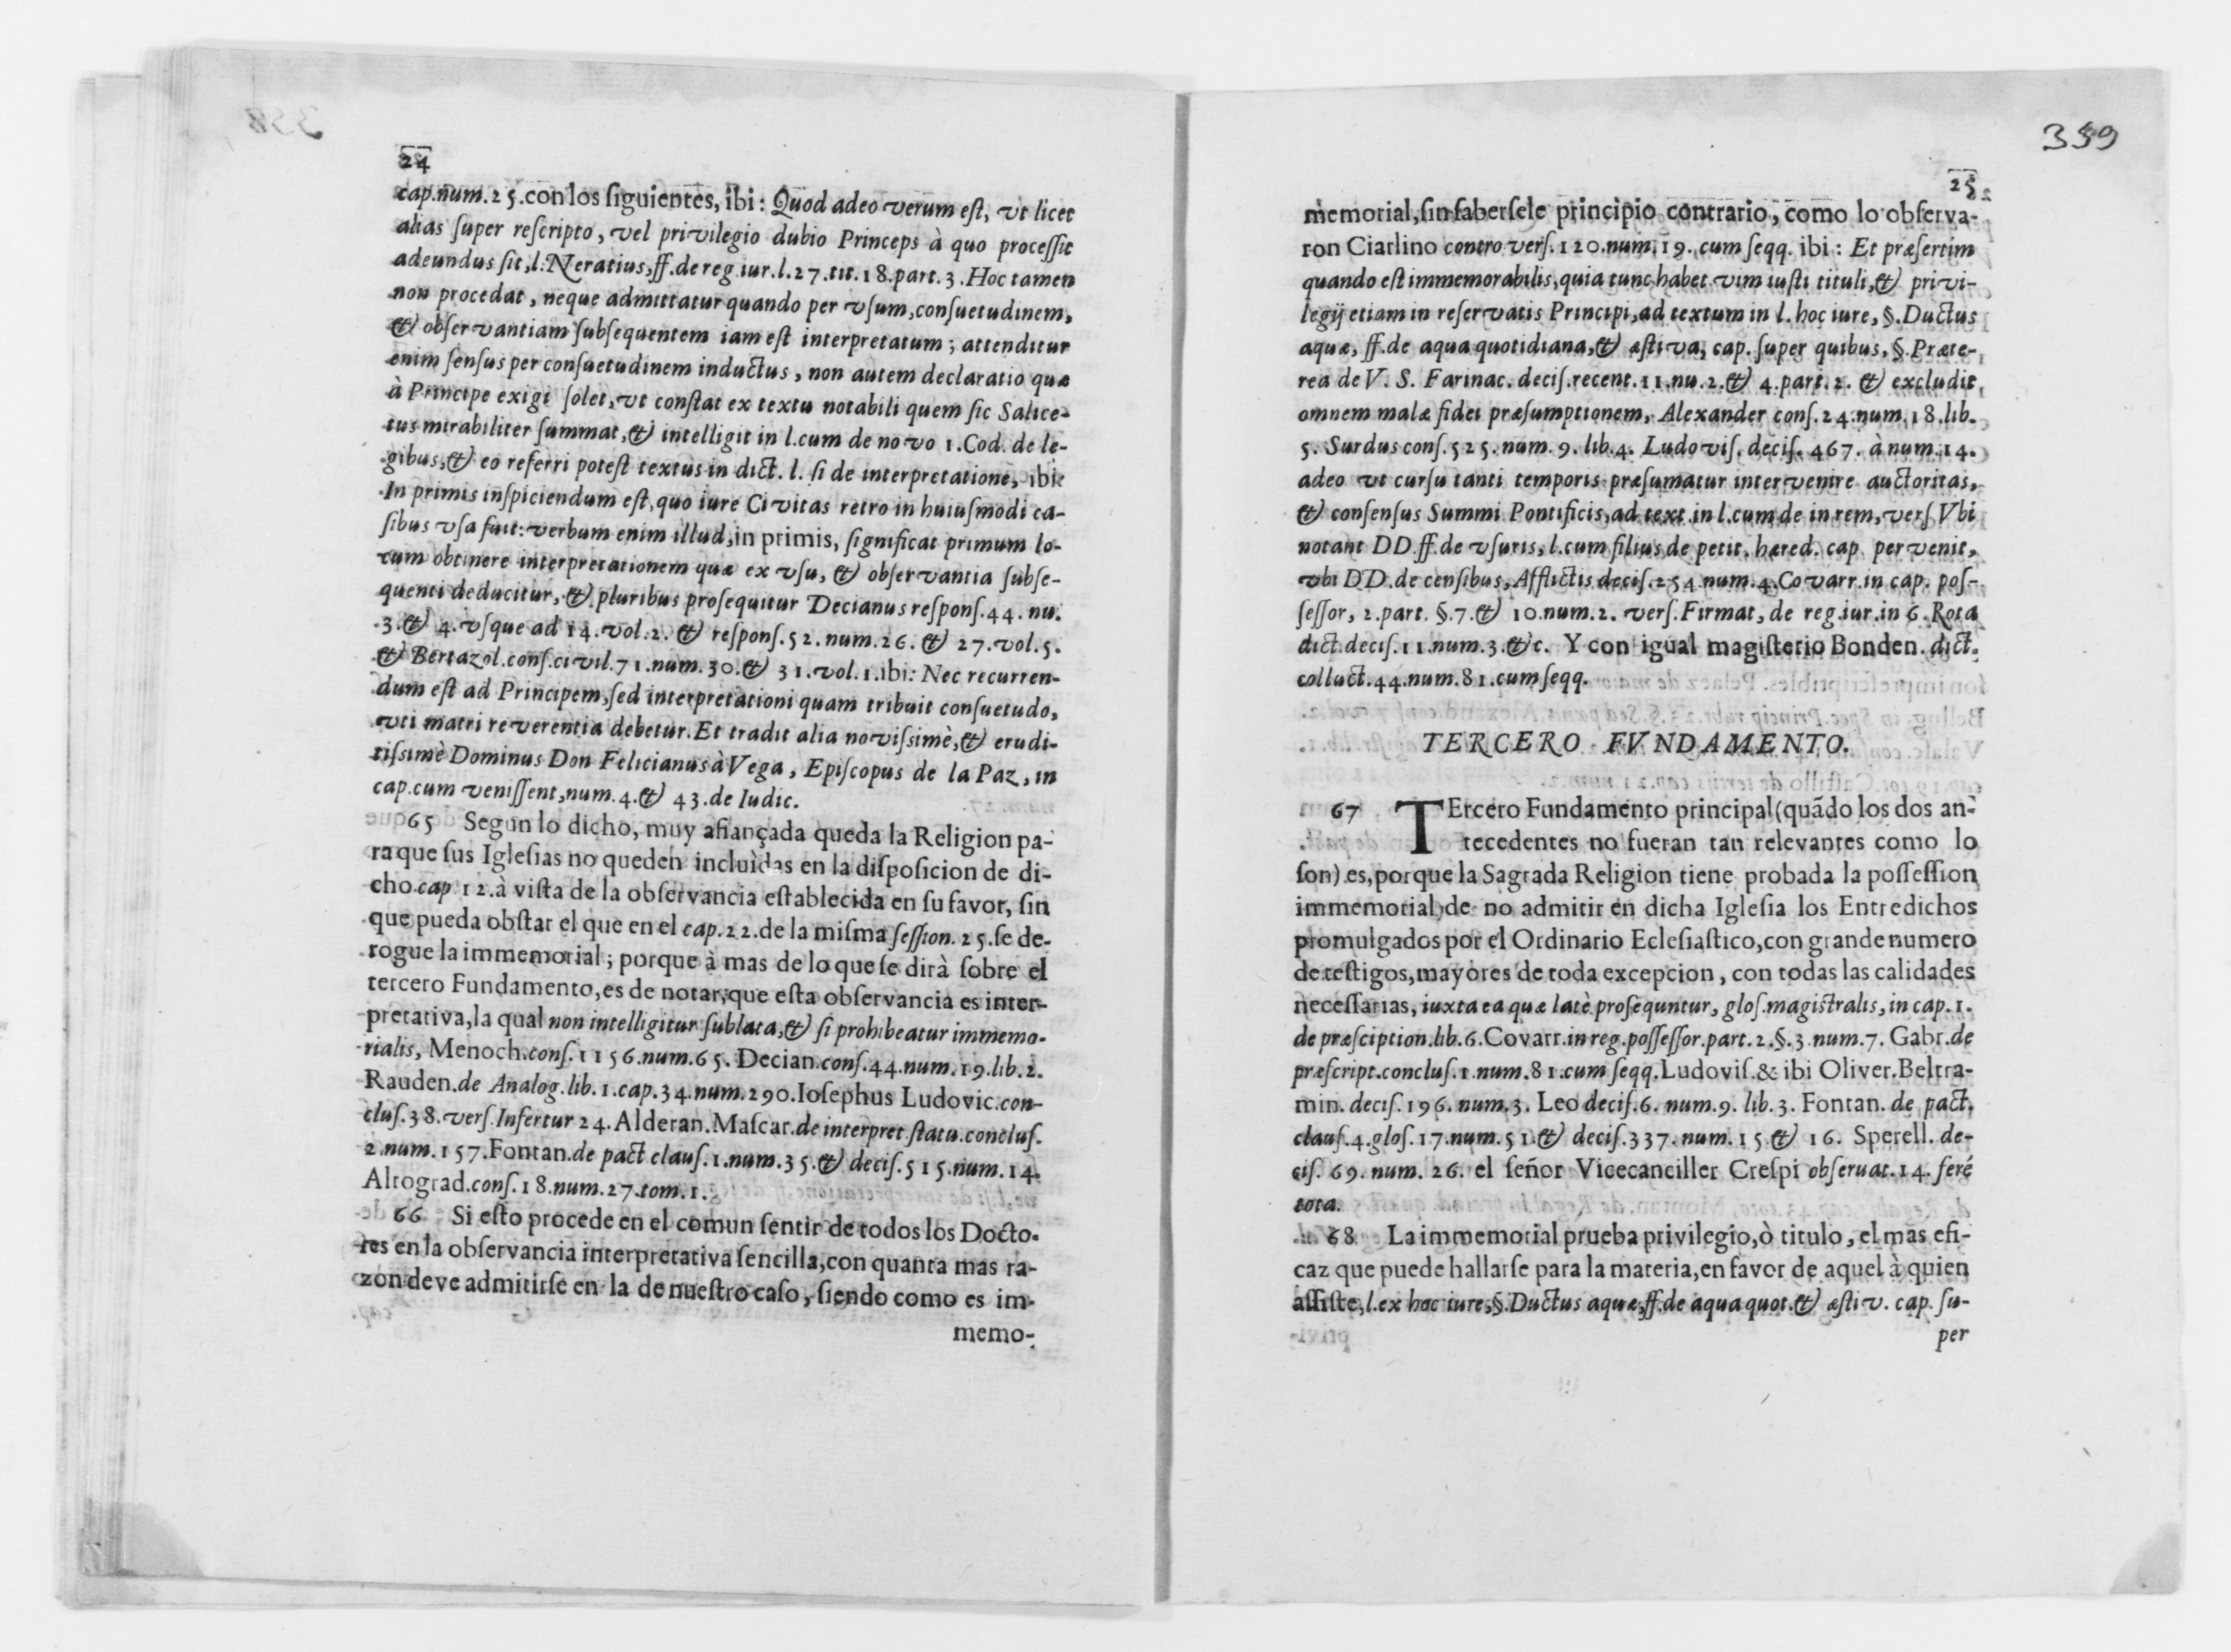 24
cap.num.25.con los ſiguientes, ibi: Quod adeo verum eſt, vt licet
alias ſuper reſcripto, vel privilegio dubio Princeps à quo proceſſit
adeundus ſit, l. Neratius, ff. de reg iur. l. 27. tit. 18. part. 3. Hoc tamen
non procedat, neque admittatur quando per vſum, conſuetudinem,
& obſervantiam ſubſequentem iam eſt interpretatum; attenditur
enim ſenſus per conſuetudinem inductus, non autem declaratio quæ
à Principe exigi ſolet, vt conſtat ex textu notabili quem ſic Salice-
tus mirabiliter ſummat, & intelligit in l. cum de novo 1. Cod. de le-
gibus, & eo referri poteſt textus in dict. l. ſi de interpretatione, ibi:
In primis inſpiciendum eſt, quo iure Civitas retro in huiuſmodi ca-
ſibus vſa fuit: verbum enim illud, in primis, ſignificat primum lo-
cum obtinere interpretationem quæ ex vſu, & obſervantia ſubſe-
quenti deducitur, & pluribus proſequitur Decianus reſponſ. 44. nu.
3. & 4. vſque ad 14. vol. 2. & reſponſ. 52. num. 26. & 27. vol. 5.
& Bertazol. conſ. civil. 71. num. 30. & 31. vol. 1. ibi: Nec recurren-
dum eſt ad Principem, ſed interpretationi quam tribuit conſuetudo,
vti matri reverentia debetur. Et tradit alia noviſsimè, & erudi-
tiſsimè Dominus Don Felicianus à Vega, Epiſcopus de la Paz, in
cap. cum veniſſent, num. 4. & 43. de Iudic.
65 Segun lo dicho, muy afiançada queda la Religion pa-
ra que ſus Igleſias no queden incluìdas en la diſpoſicion de di-
cho cap. 12. à viſta de la obſervancia eſtablecida en ſu favor, ſin
que pueda obſtar el que en el cap. 22. de la miſma ſeſſion. 25. ſe de-
rogue la immemorial; porque à mas de lo que ſe dirà ſobre el
tercero Fundamento, es de notar, que eſta obſervancia es inter-
pretativa, la qual non intelligitur ſublata, & ſi prohibeatur immemo-
rialis, Menoch. conſ. 1156. num. 65. Decian. conſ. 44. num. 19. lib. 2.
Rauden. de Analog. lib. 1. cap. 34. num. 290. Ioſephus Ludovic. con-
cluſ. 38. verſ. Infertur 24. Alderan. Maſcar. de interpret. ſtatu. concluſ.
2. num. 157. Fontan. de pact clauſ. 1. num. 35. & deciſ. 515. num. 14.
Altograd. conſ. 18. num. 27. tom. 1.
66 Si eſto procede en el comun ſentir de todos los Docto-
res en la obſervancia interpretativa ſencilla, con quanta mas ra-
zon deve admitirſe en la de nueſtro caſo, ſiendo como es im-
memo-
359
25
memorial, ſin ſaberſele principio contrario, como lo obſerva-
ron Ciarlino controverſ. 120. num. 19. cum ſeqq. ibi: Et præſertim
quando eſt immemorabilis, quia tunc habet vim iuſti tituli, & privi-
legij etiam in reſervatis Principi, ad textum in l. hoc iure, §. Ductus
aquæ, ff. de aqua quotidiana, & æſtiva, cap. ſuper quibus, §. Præte-
rea de V. S. Farinac. deciſ. recent. 11. nu. 2. & 4. part. 2. & excludit
omnem malæ fidei præſumptionem, Alexander conſ. 24. num. 18. lib.
5. Surdus conſ. 525. num. 9. lib. 4. Ludoviſ. deciſ. 467. à num. 14.
adeo vt curſu tanti temporis præſumatur intervenire auctoritas,
& conſenſus Summi Pontificis, ad text. in l. cum de in rem, verſ Vbi
notant DD. ff. de vſuris, l. cum filius de petit. hæred. cap. pervenit,
vbi DD. de cenſibus, Afflictis deciſ. 254. num. 4. Covarr. in cap. poſ-
ſeſſor, 2. part. §. 7. & 10. num. 2. verſ. Firmat, de reg. iur. in 6. Rota
dict. deciſ. 11. num. 3. &c. Y con igual magiſterio Bonden. dict.
colluct. 44. num. 81. cum ſeqq.
TERCERO FVNDAMENTO.
67 TErcero Fundamento principal (quãdo los dos an-
tecedentes no fueran tan relevantes como lo
ſon) es, porque la Sagrada Religion tiene probada la poſſeſſion
immemorial, de no admitir en dicha Igleſia los Entredichos
promulgados por el Ordinario Ecleſiaſtico, con grande numero
de teſtigos, mayores de toda excepcion, con todas las calidades
neceſſarias, iuxta ea quæ latè proſequntur, gloſ. magiſtralis, in cap. 1.
de præſciption. lib. 6. Covarr. in reg. poſſeſſor. part. 2. §. 3. num. 7. Gabr. de
præſcript. concluſ. 1. num. 81. cum ſeqq. Ludoviſ. & ibi Oliver. Beltra-
min. deciſ. 196. num. 3. Leo deciſ. 6. num. 9. lib. 3. Fontan. de pact.
clauſ. 4. gloſ. 17. num. 51. & deciſ. 337. num. 15. & 16. Sperell. de-
ciſ. 69. num. 26. el ſeñor Vicecanciller Creſpi obſeruat. 14. ferè
tota.
68 La immemorial prueba privilegio, ò titulo, el mas efi-
caz que puede hallarſe para la materia, en favor de aquel à quien
aſſiſte, l. ex hoc iure, §. Ductus aquæ, ff. de aqua quot. & æſtiv. cap. ſu-
per